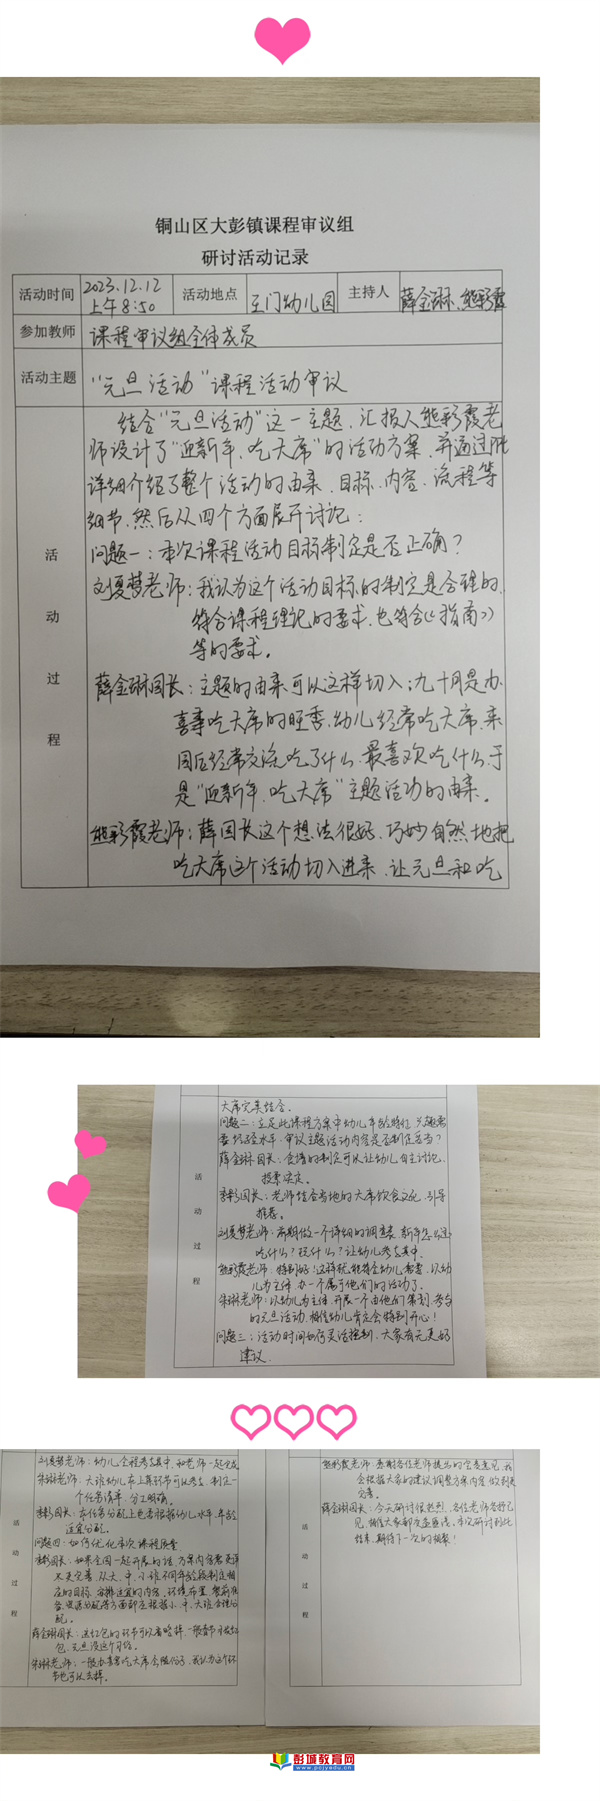 铜山区大彭镇课程审议组
研讨活动记录
活动时间 2023.12.12 上午8:50 活动地点 王门幼儿园 主持人 薛金琳、熊彩霞
参加教师 课程审议组全体成员
活动主题 “元旦活动”课程活动审议
活动过程
结合“元旦活动”这一主题,汇报人熊彩霞老
师设计了“迎新年、吃大席”的活动方案,并通过
详细介绍了整个活动的由来、目标、内容、流程等
细节,然后从四个方面展开讨论:
问题一:本次课程活动目标制定是否正确?
刘夏梦老师:我认为这个活动目标的制定是合理的,
符合课程理论的要求,也符合《指南》
等的要求。
薛金琳园长:主题的由来可以这样切入:九十月是办
喜事吃大席的旺季,幼儿经常吃大席,来
园后经常交流吃了什么,最喜欢吃什么,于
是“迎新年、吃大席”主题活动的由来。
熊彩霞老师:薛园长这个想法很好,巧妙自然地把
吃大席这个活动切入进来,让元旦和吃
大席完美结合。
活动过程
问题二:立足此课程方案中幼儿年龄特征、兴趣需
要、经验水平,审议主题活动内容是否制定适当?
薛金琳园长:食谱的制定可以让幼儿自主讨论,
投票决定。
园长:老师结合当地的大席饮食文化,引导
推荐。
刘夏梦老师:前期做一个详细的调查表,新年怎么过
吃什么?玩什么?让幼儿参与其中。
熊彩霞老师:特别好!这样就能符合幼儿需要,以幼
儿为主体,办一个属于他们的活动了。
朱琳老师:以幼儿为主体,开展一个由他们策划、参与
的元旦活动,相信幼儿肯定会特别开心!
问题三:活动时间如何灵活控制,大家有无更好
建议。
活动过程
刘夏梦老师:幼儿全程参与其中,和老师一起完成
朱琳老师:大班幼儿在上菜环节可以参与,制定一
个任务清单,分工明确。
园长:在任务分配上也要根据幼儿水平、年龄
适宜分配。
问题四:如何优化本次课程质量
园长:如果全园一起开展的话,方案内容需更详
不更完善,从大、中、小班不同年龄段制定相
应的目标,安排适宜的内容,环境布置、餐前准
备、任务分配等方面都应根据小、中、大班合理分
配。
薛金琳园长:送红包的环节可以省略掉,一般春节才发红
包,元旦没这个习俗。
朱琳老师:一般办喜宴吃大席会随份子,我认为这个环
节也可以去掉。
活动过程
熊彩霞老师:感谢各位老师提出的宝贵意见,我
会根据大家的建议调整方案内容,做到更
完善。
薛金琳园长:今天研讨很热烈,各位老师各抒己
见,相信大家都收益匪浅,本次研讨到此
结束,期待下一次的相聚!
彭城教育网
www.pcjyedu.cn